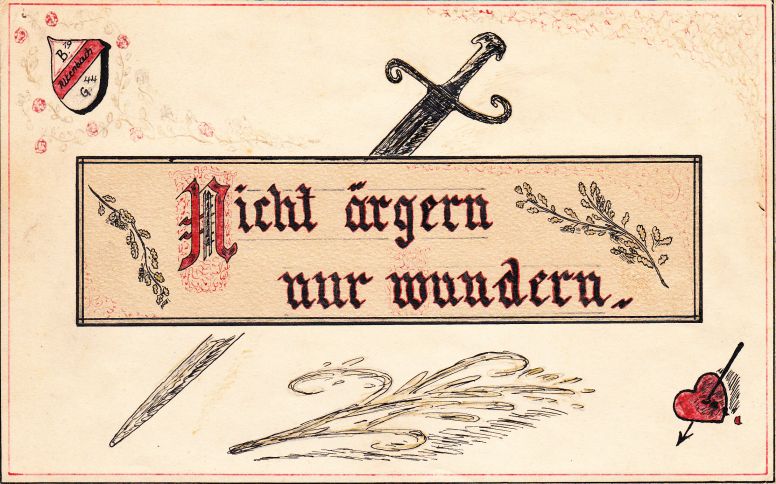 19
B
Rikenbach
44
G
Nicht ärgern
nur wundern.